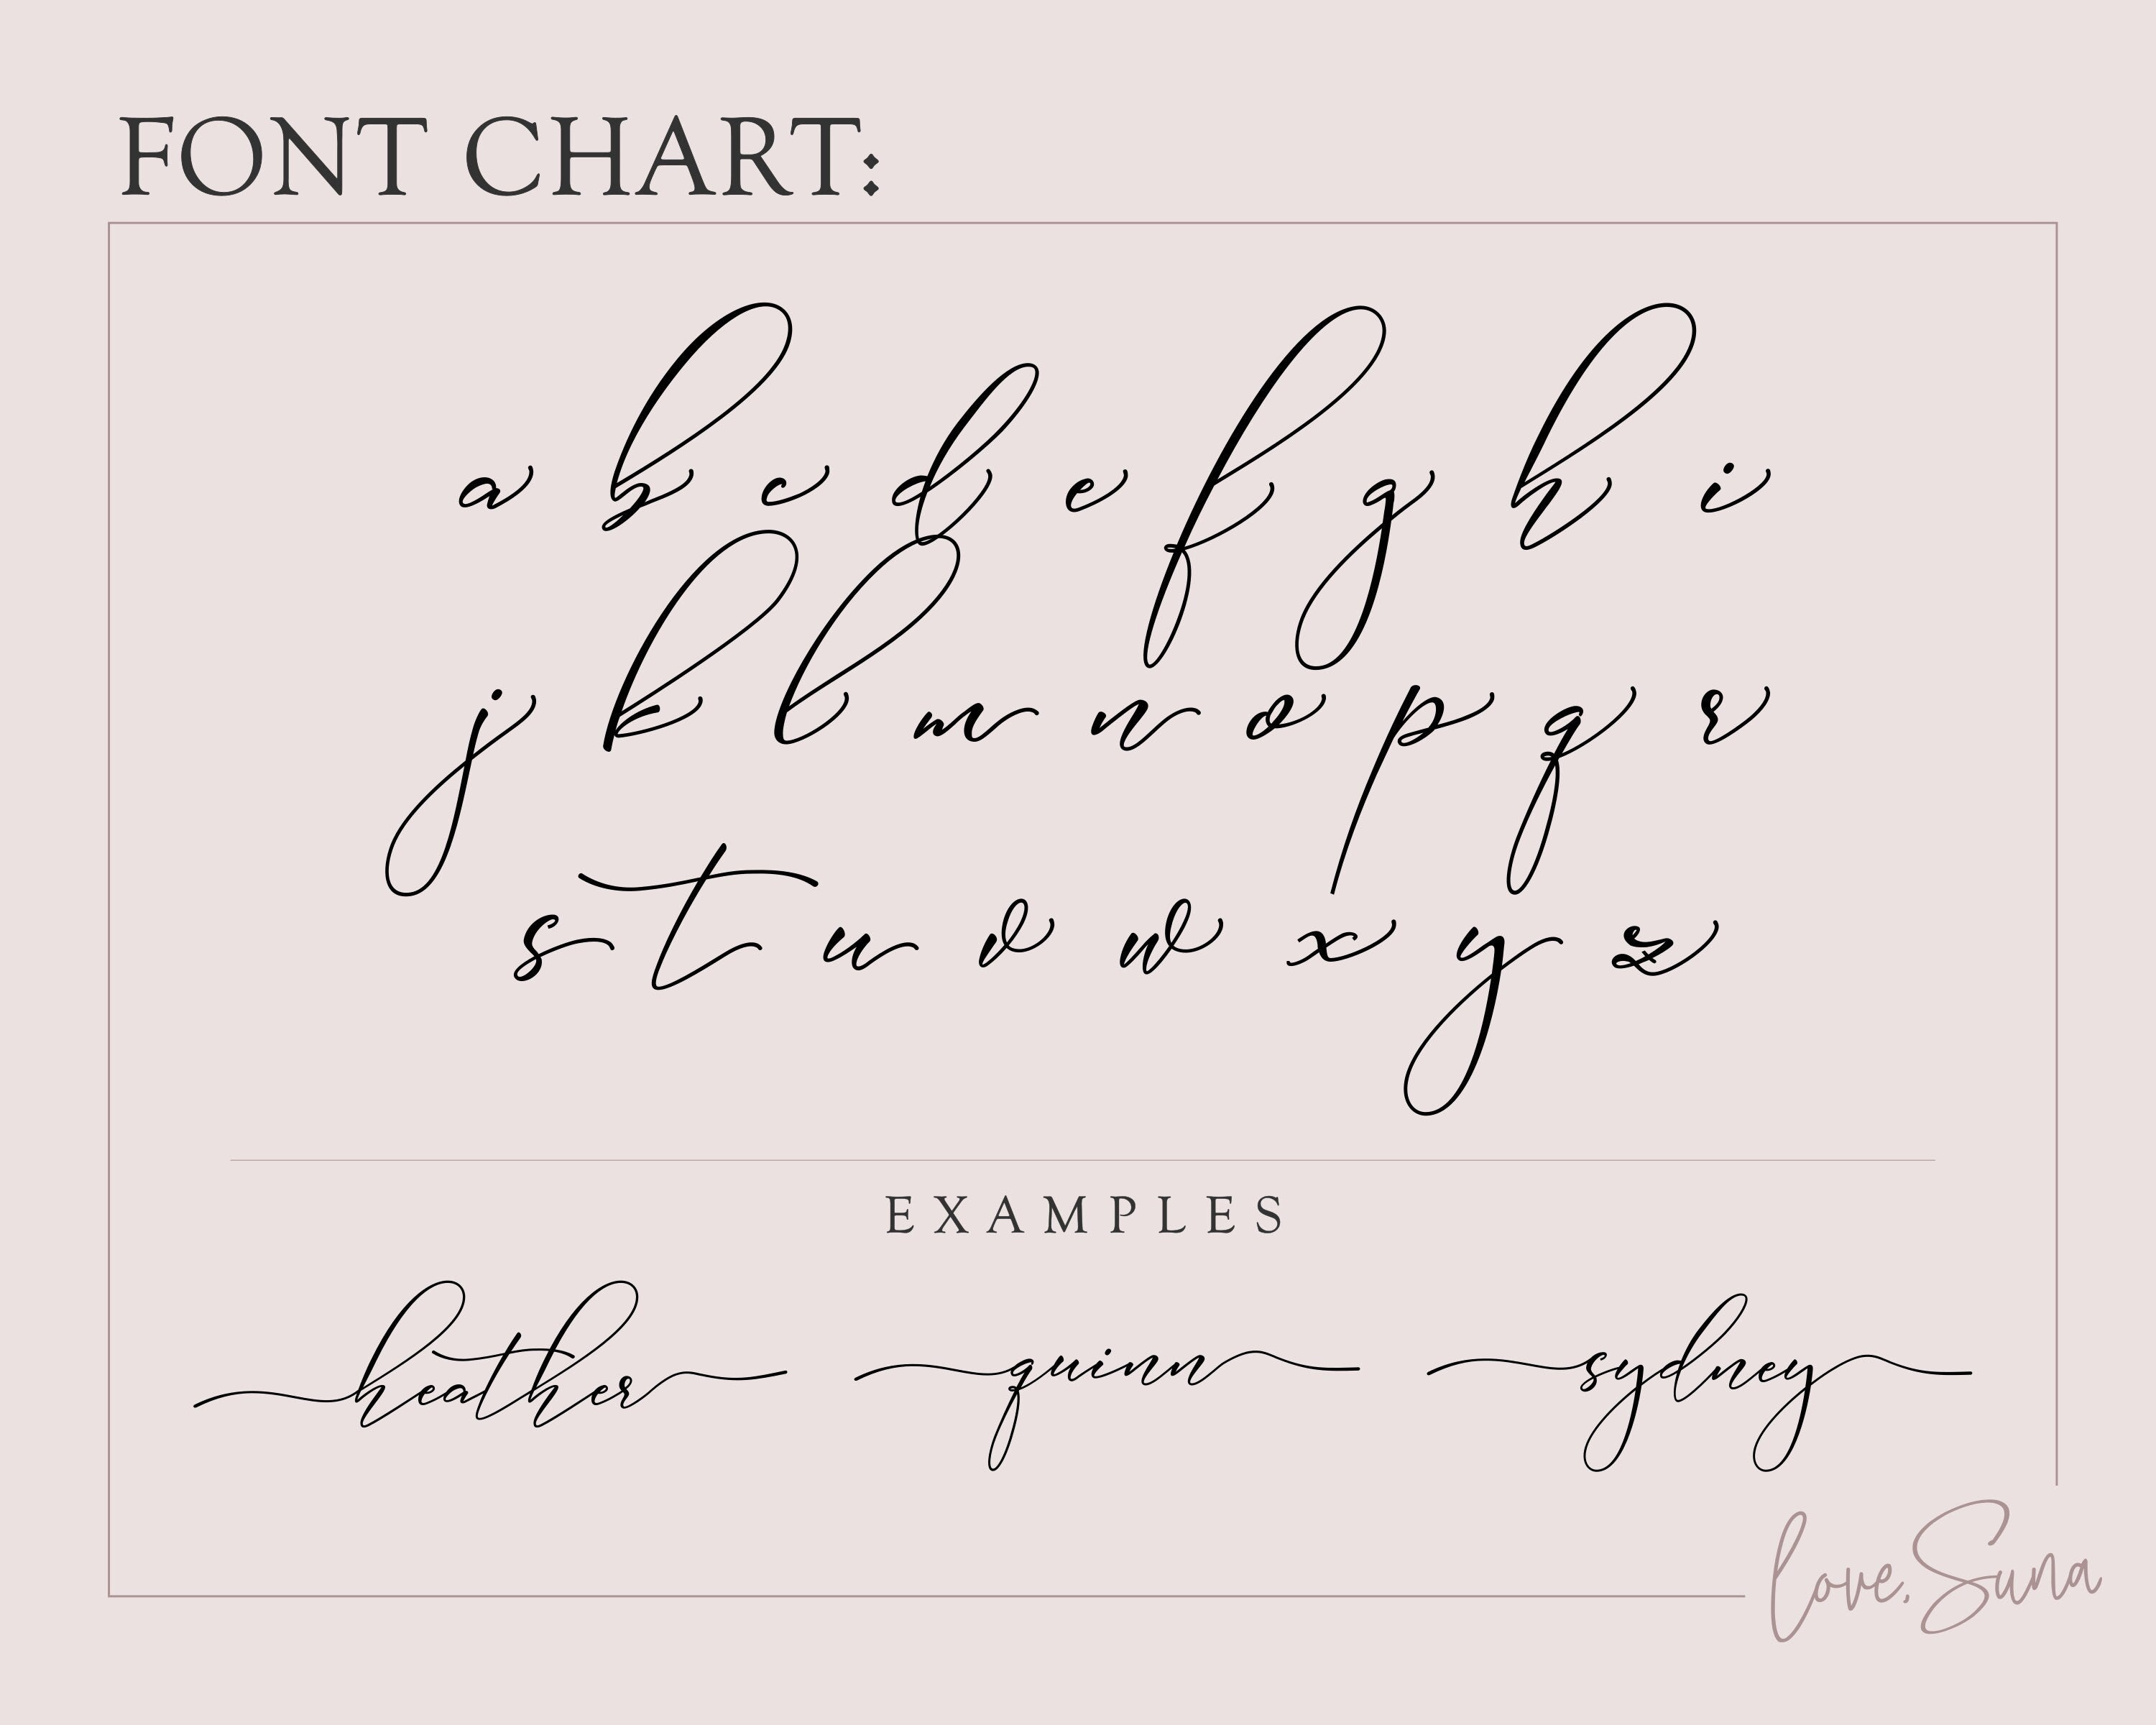 FONT CHART:
a b c d e f g h i
j k l m n o p q r
s t u v w x y z
EXAMPLES
heather quinn sydney
love, Suna